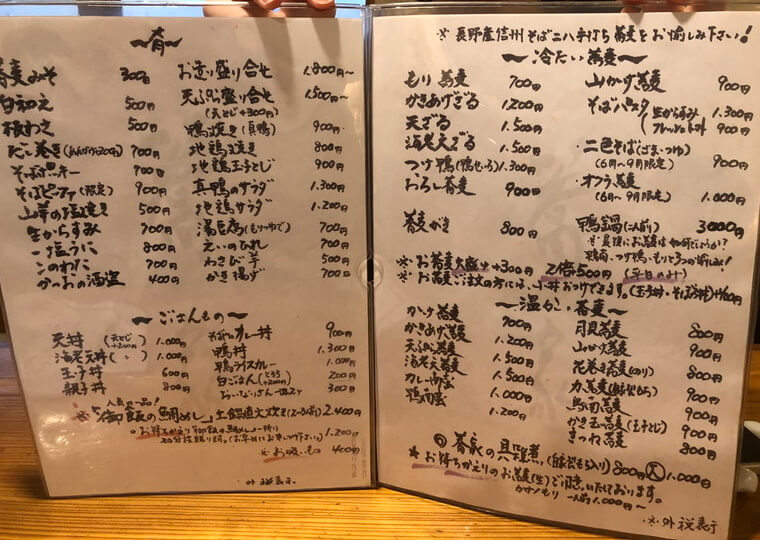 〜肴〜
蕎麦みそ 300円
白和え 500円
板わさ 500円
だし巻き 700円
そば黒ッキー 700円
そばピッツァ(限定) 900円
山芋の塩焼き 500円
生からすみ 700円
塩うに 800円
このわた 700円
かつおの酒盗 400円
お造り盛り合せ 1.800円〜
天ぷら盛り合せ 1.500円〜
(天とじ+300円)
鴨焼き(真鴨) 900円
地鶏焼き 800円
地鶏玉子とじ 900円
真鴨のサラダ 1.300円
地鶏サラダ 1.200円
湯豆腐(もりorゆで) 700円
えいのひれ 700円
わさび芋 500円
かき揚げ 700円
〜ごはんもの〜
天丼(天とじ+200円) 1.000円
海老天丼(〃) 1.000円
玉子丼 600円
親子丼 800円
そばやのカレー丼 900円
鴨丼 1.300円
鴨ライスカレー 1.000円
白ごはん(とろろ+200円) 200円
おいなりさん 300円
人気の一品!
※御飯の鯛めし 土鍋直火炊き(2〜3人前) 2.400円
お持ちかえり御飯の鯛めし一折り 1.200円
20分技頂ります。(お早めにお申しつけ下さい。)
※お吸いもの 400円
外税表示
※長野産信州そば二八手打ち蕎麦をお愉しみ下さい!
〜冷たい蕎麦〜
もり蕎麦 700円
かきあげざる 1.200円
天ざる 1.500円
海老天ざる 1.500円
つけ鴨(鴨せいろ) 1.300円
おろし蕎麦 900円
蕎麦がき 800円
山かけ蕎麦 900円
そばパスタ(生からすみ 1.300円
フレッシュトマト 900円
・二色そば(ごま・つゆ)
(6月〜9月限定) 900円
・オクラ蕎麦
(6月〜9月限定) 1.000円
鴨鍋(二人前) 3000円
※最後にお蕎麦は如何でしょうか?
鴨南・つけ鴨・もりと3つの愉しみ!
※お蕎麦大盛り+300円 2倍500円(平日のみ)
※お蕎麦ご注文の方には、小丼おつけできます。(玉子丼・そぼろ丼)+400円
〜温かい蕎麦〜
かけ蕎麦 700円
かきあげ蕎麦 1.200円
天ぷら蕎麦 1.500円
海老天蕎麦 1.500円
カレー南蛮 1.000円
鴨南蛮 1.200円
月見蕎麦 800円
山かけ蕎麦 900円
花巻き蕎麦(のり) 800円
力蕎麦 900円
鳥南蕎麦 900円
かき玉蕎麦(玉子とじ) 900円
きつね蕎麦 800円
◎蕎家の具雑煮 800円 大 1.000円
★お持ちかえりのお蕎麦(生)ご用意いたしております。
一人前1.000円〜
※外税表示